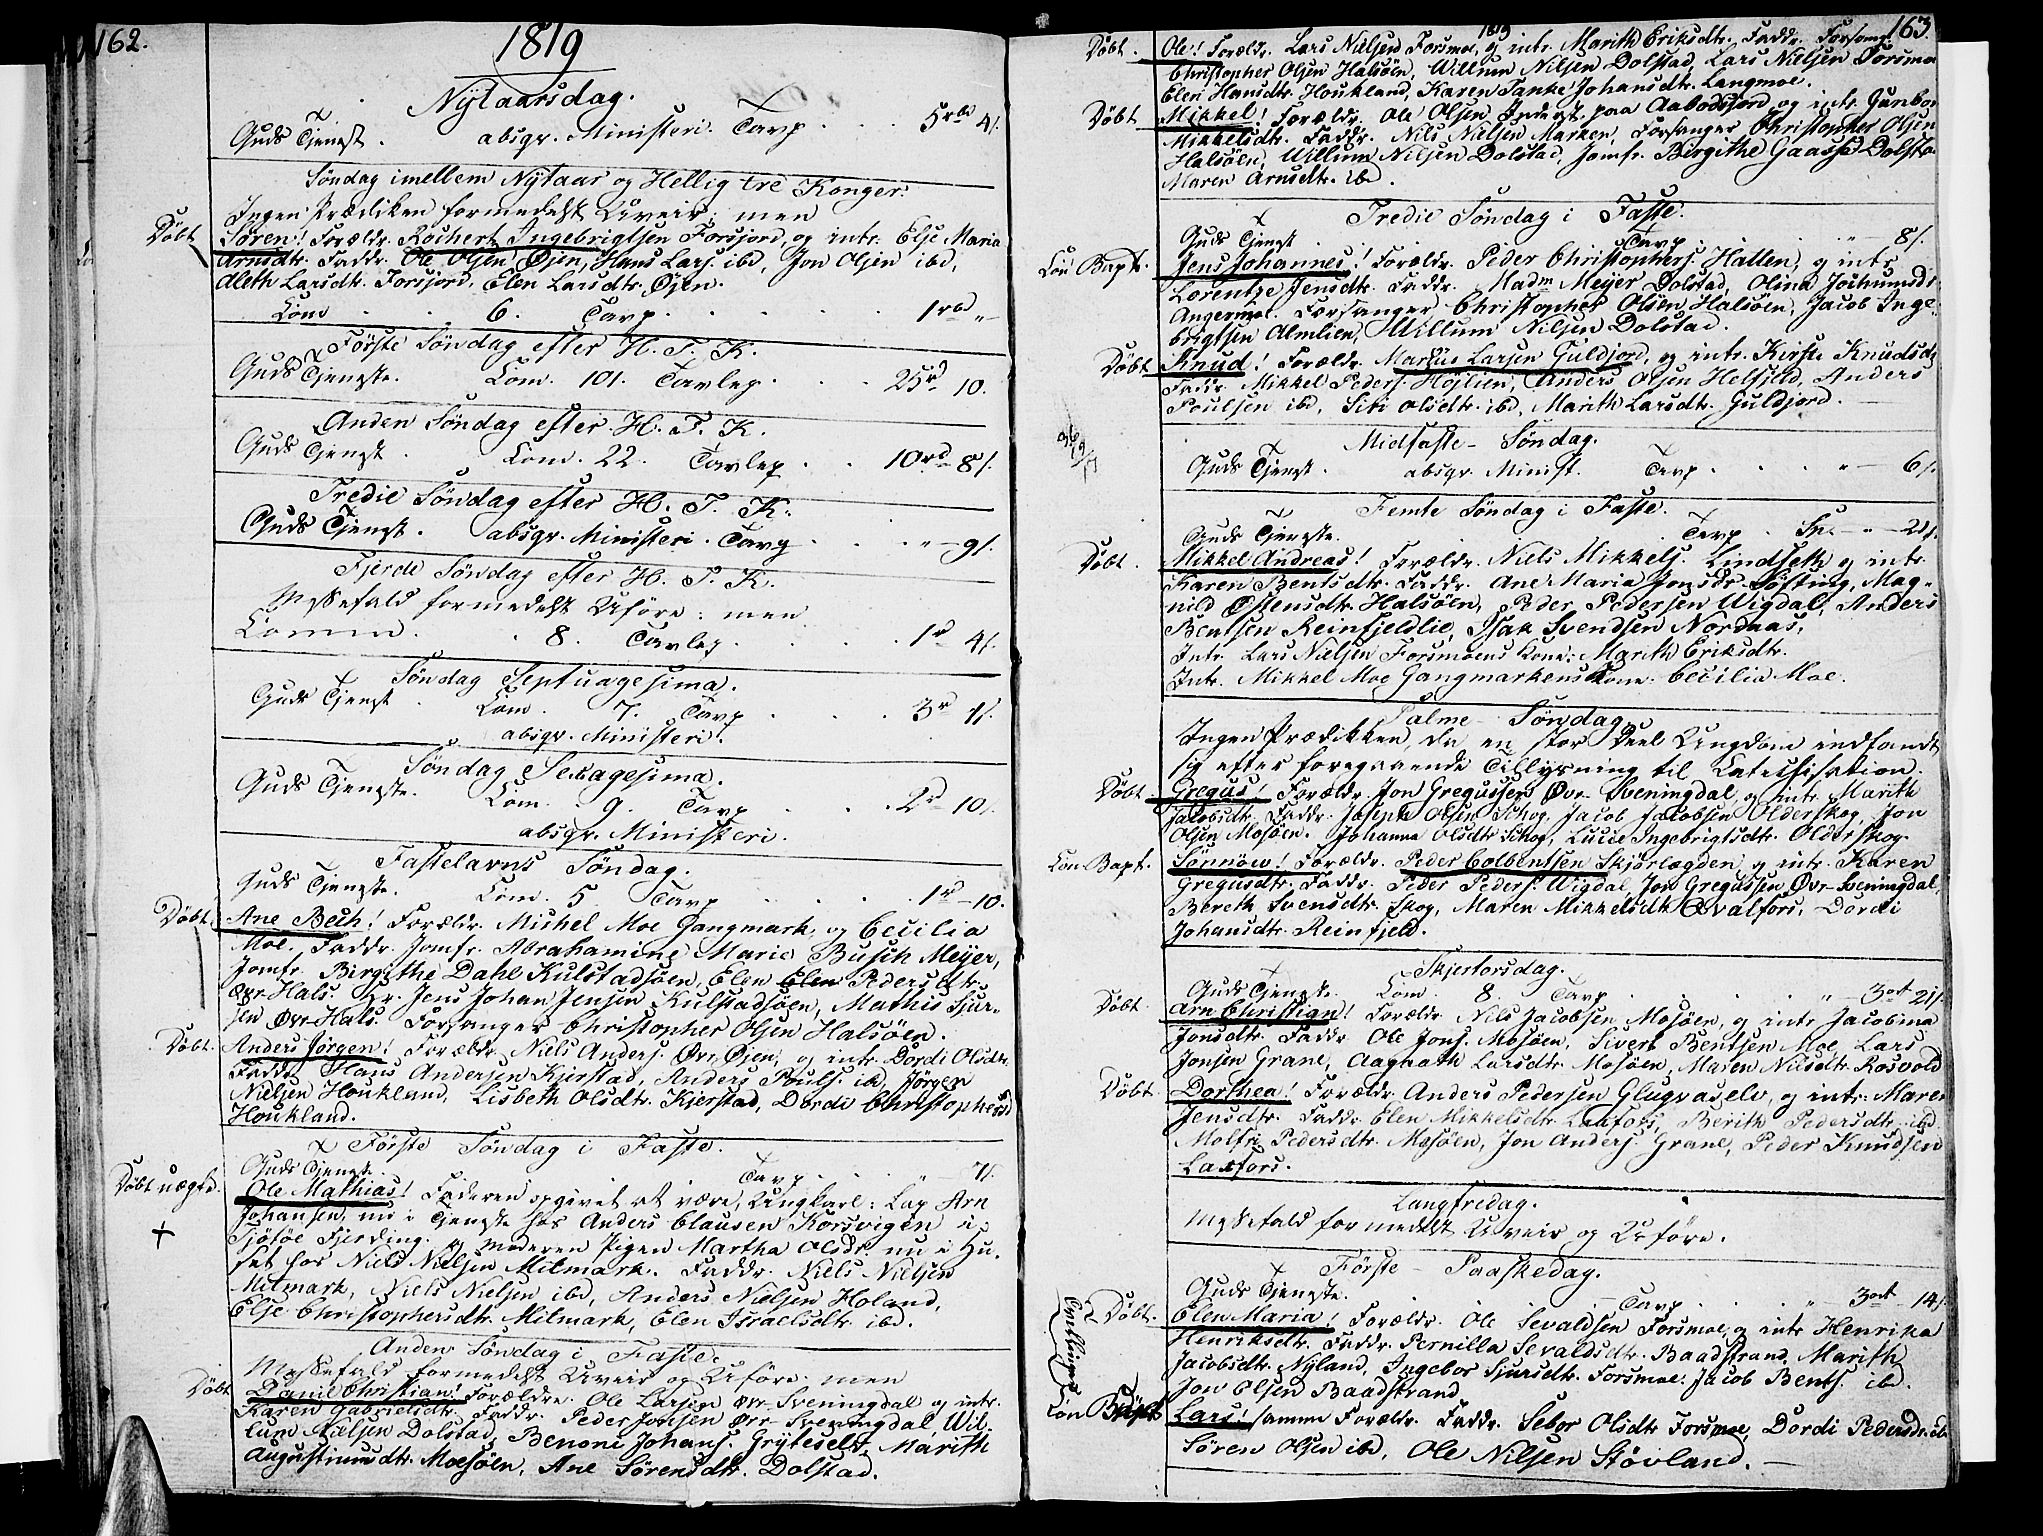 162.
1819
Nytaarsdag.
Guds Tjenest. absgr. Ministeri. Tavp . . . 5rbd 4/.
Søndag imellem Nytaar og Hellig tre Konger.
Ingen Prædiken formedelst Uveir; men
Døbt Søren! Forældr. Rochert Ingebrigtsen Forsjord, og intr. Else Maria
Arnsdtr. Faddr. Ole Olsen Øjen, Hans Lars. ibd, Jon Olsen ibd,
Aleth Larsdtr. Forsjord, Elen Larsdtr. Øjen.
Com . . 6. Tavp. . . . . 1rbd „
Første Søndag efter H. T. K.
Guds Tjenste. Com. 101. Tavlep. . . . 25rd 10.
Anden Søndag efter H. T. K.
Guds Tjenest. Com. 22. Tavlep . . 10rd 8/.
Tredie Søndag efter H. T. K.
Guds Tjenest. absgr. Ministeri. Tavp . . . „ — 9/.
Fjerde Søndag efter H. T. K.
Messefald formedelst Uføre: men
Comm. . 8. Tavlep. . . . 1r 4/.
Søndag Septuagesima.
Guds Tjenest . Com. 7. Tavp . . . 3r 1/.
absgr. Ministeri.
Søndag Sexagesima.
Guds Tjenste. Com. 9. Tavp . . . 2rd 10/.
absgr. Ministeri.
Fastelavns Søndag.
Guds Tjenste. Com. 5 Tavp . . . . 1r — 10.
Døbt. Ane Bech! Forældr. Mishel Moe Gangmark, og Cecilia
Moe. Faddr. Jomfr. Abrahamine Marie Busch Meyer,
Jomfr. Birgithe Dahl Kulstadsøen, Elen Elen Pedersdtr.
Øvr-Hals. Hr. Jens Johan Jensen Kulstadsøen, Mathis Sjur-
sen Øvr-Hals. Forsanger Christopher Olsen Halsøen.
Døbt. Anders Jørgen! Forældr. Niels Anders. Øvr. Øjen, og intr. Dordi Olsdtr.
Faddr. Hans Andersen Kjerstad, Anders Pouls. ibd, Jørgen
Nielsen Houkland, Lisbeth Olsdtr. Kjerstad, Dordi Christophersd
Houkland.
Første Søndag i Faste.
Guds Tjenste. Tavp . . . „ — 7/.
Døbt uægte. Ole Mathias! Faderen opgivet at være, Ungkarl: Lap Arn
Johansen, nu i Tjeneste hos Anders Clausen Korsvigen i
Tjøtøe Fjerding. og Moderen Pigen Martha Olsdr. nu i Hu-
set hos Niels Nielsen Mitmark. Faddr. Niels Nielsen
Mitmark, Niels Nielsen ibd, Anders Nielsen Holand,
Else Christophersdtr. Mitmark, Elen Israelsdtr. ibd.
Anden Søndag i Faste.
Messefald formedelst Uveir og Uføre: men
Døbt Daniel Christian! Forældre. Ole Larsen Øvr-Sveningdal og intr.
Karen Gabrielsdtr. Faddr. Peder Jonsen Øvr-Sveningdal, Wil-
lum Nielsen Dolstad, Benoni Johans. Grytesels, Marith
Augustinusdtr. Mosøen, Ane Sørensdtr. Dolstad.
1819
163.
Døbt. Ole! Forældr. Lars Nielsen Forsmoe, og intr. Marith Eriksdtr. Faddr. Forsang
Christopher Olsen Halsøen, Willum Nilsen Dolstad, Lars Nielsen Forsmoe
Elen Hansdtr. Houkland, Karen Tanke Johansdtr. Langmoe.
Døbt Mikkel! Forældr. Ole Olsen Inderst paa Aabodsjord og intr. Gunbor
Mikkelsdtr. Faddr. Nils Nielsen Marken, Forsanger Christopher Olsen
Halsøen, Willum Nilsen Dolstad, Jomfr. Birgithe Gaasse Dolsta
Maren Arnsdtr. ibd.
Tredie Søndag i Faste.
Guds Tjenest . . . Tavp . . . „ — 8/.
Con Bapt. Jens Johannes! Forældr. Peder Christophers. Hatten, og intr
Lorentze Jensdtr. Faddr. Madm Meyer Dolstad, Olina Jochumsdr
Angermoe. Forsanger Christopher Olsen Halsøen, Jacob Inge-
brigtsen Almlien, Willum Nilsen Dolstad.
Døbt Knud! Forældr. Markus Larsen Guldjord, og intr. Kirste Knudsdr
Faddr. Mikkel Peders. Højlien, Anders Olsen Helfjeld, Anders
Poulsen ibd, Siri Olsdtr. ibd, Marith Larsdtr. Guldjord.
Midfaste-Søndag.
Guds Tjenest. absgr. Minist. Tavp . . . . „ — 6/.
Femte Søndag i Faste.
Guds Tjenste. . . . Tavp . . Spc — „ — 21/.
Døbt. Mikkel Andreas! Forældr. Niels Mikkels. Lindseth og intr.
Karen Bentsdtr. Faddr. Ane Maria Jonsdr. Søfting, Mag-
nild Østensdtr. Halsøen, Peder Pedersen Wigdal, Anders
Bentsen Reinfjeldlie, Isak Svendsen Nordaas,
Intr. Lars Nielsen Forsmoens Kone: Marith Eriksdtr.
Intr. Mikkel Moe Gangmarkens Kone. Cecilia Moe.
Palme-Søndag.
Ingen Prædikken, da en stor Deel Ungdom indfandt
sig efter foregaaende Tillysning til Catechisation.
Døbt. Gregus! Forældr. Jon Gregussen Øvr-Sveningdal og intr. Marith
Jacobsdtr. Faddr. Joseph Olsen Skog, Jacob Jacobsen Olderskog, Jon
Olsen Mosøen. Johanna Olsdtr. Skog, Lucie Ingebrigtsdtr. Olderskog.
Con Bapt. Sønnøw! Forældr. Peder Colbentsen Skjørlægden, og intr. Karen
Gregusdtr. Faddr. Peder Peders. Wigdal, Jon Gregussen Øvr-Sveningdal,
Bereth Svensdtr. Skog, Maren Mikkelsdtr. Qvalfors, Dordi
Johansdtr. Reinfjeld.
Skjertorsdag.
Guds Tjenste. Com. 8. Tavp . . . „ 3ort 21/.
Døbt. Arn Christian! Forældr. Nils Jacobsen Mosøen, og intr. Jacobina
Jonsdtr. Faddr. Ole Jons. Mosøen, Sivert Bentsen Moe, Lars
Jonsen Grane, Aagnath Larsdtr. Mosøen, Maren Nilsdtr. Rosvold
Døbt. Dorthea! Forældr. Anders Pedersen Glugvaselv, og intr. Maren
Jensdtr. Faddr. Elen Mikkelsdtr. Laxfors, Berith Pedersdtr. ibd.
Molfri Pedersdtr. Mosøen, Jon Anders. Grane, Peder Knudsen
Laxfors.
Langfredag.
Messefald formedelst Uveir og Uføre.
Første-Paaskedag.
Guds Tjenste. . . Tavp. . . . „ 3ort 14/.
Tvillinger
Døbt. Elen Maria! Forældr. Ole Sevaldsen Forsmoe, og intr Henrika
Henriksdtr. Faddr. Pernilla Sevaldsdtr. Baadstrand, Marith
Jacobsdtr. Nyland, Ingebor Sjursdtr. Forsmoe. Jacob Bents. ibd.
Jon Olsen Baadstrand.
Con Bapt Lars! samme Forældr. Faddr. Sebor Olsdtr Forsmoe, Dordi Pedersdr. ibd
Søren Olsen ibd, Ole Nilsen Støvland. —